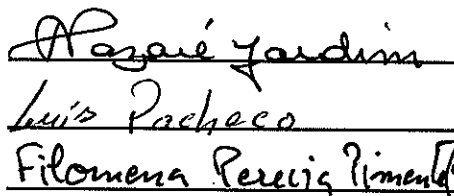 Nazaré Jardim
Luís Pacheco
Filomena Pereira Pimentel